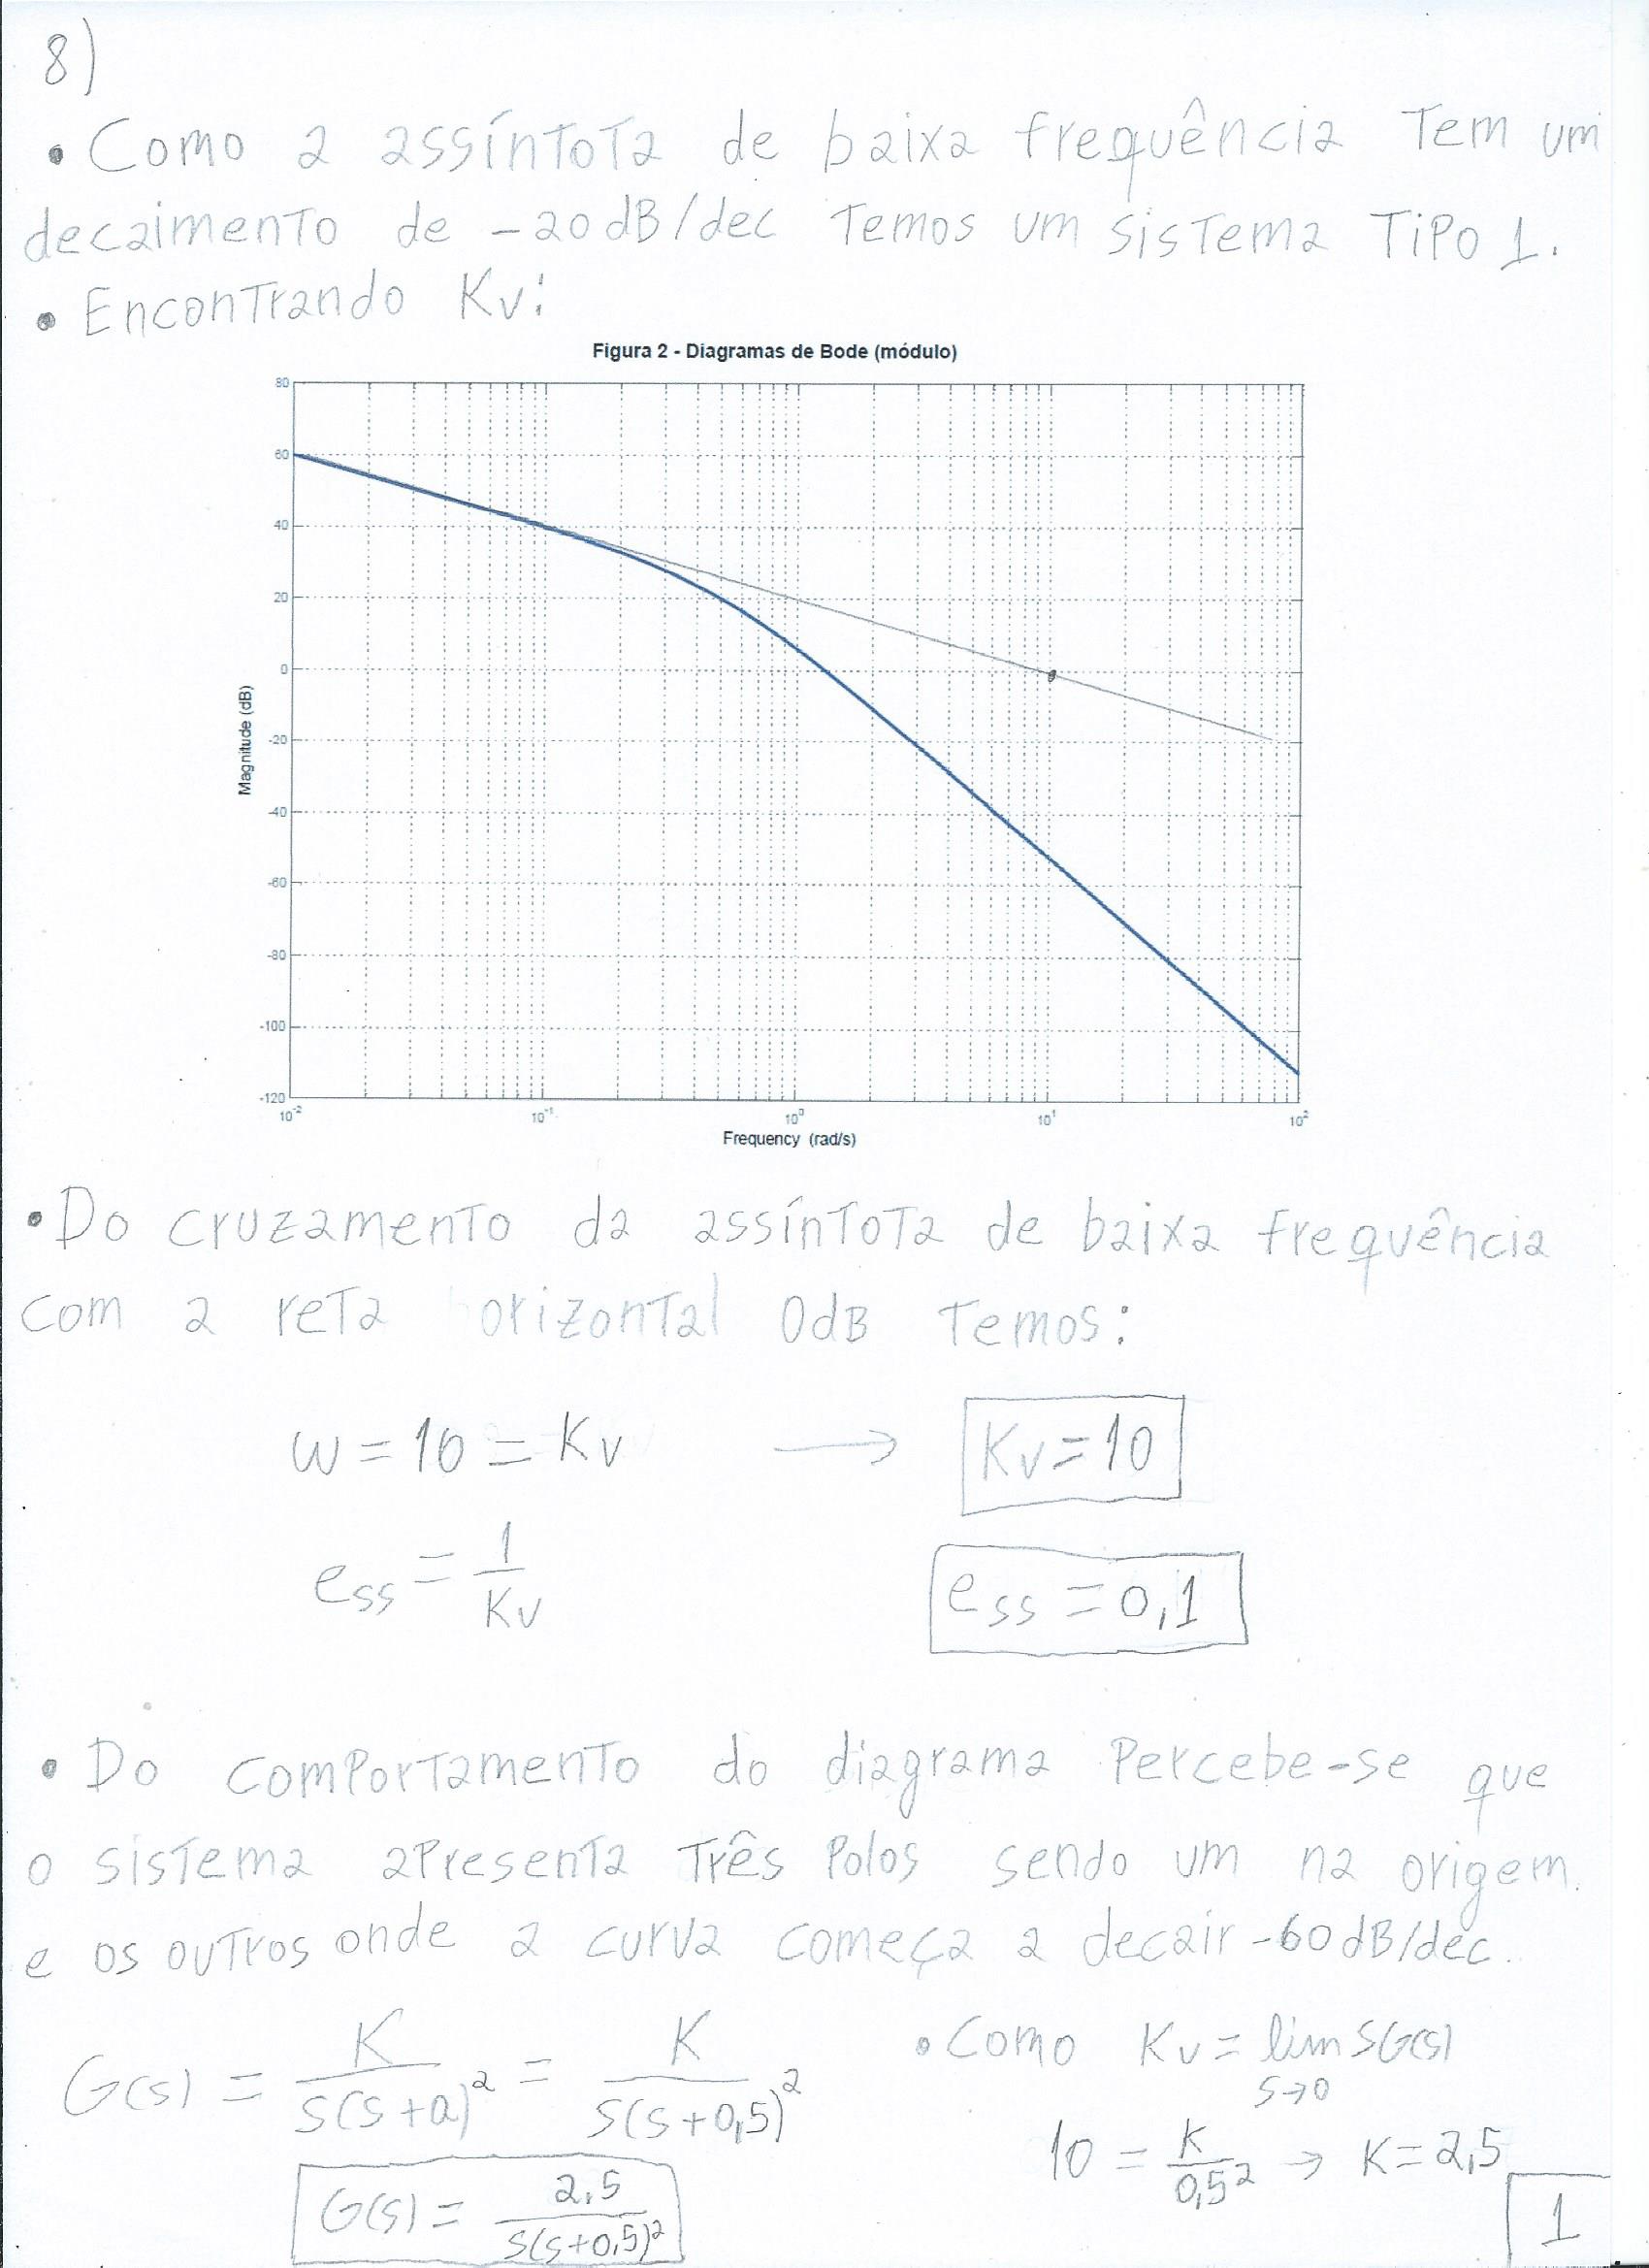 8)
• Como a assíntota de baixa frequência tem um
decaimento de -20dB/dec temos um sistema tipo 1.
• Encontrando Kv:
Figura 2 - Diagramas de Bode (módulo)
80
60
40
20
0
-20
-40
-60
-80
-100
-120
Magnitude (dB)
10⁻² 10⁻¹ 10⁰ 10¹ 10²
Frequency (rad/s)
• Do cruzamento da assíntota de baixa frequência
com a reta horizontal 0dB temos:
w = 10 = Kv → Kv = 10
ess = 1/Kv ess = 0,1
• Do comportamento do diagrama percebe-se que
o sistema apresenta três polos sendo um na origem.
e os outros onde a curva começa a decair -60dB/dec.
G(s) = K/s(s+a)² = K/s(s+0,5)² • Como Kv = lim sG(s)
s→0
10 = K/0,5² → K = 2,5
G(s) = 2,5/s(s+0,5)²
1